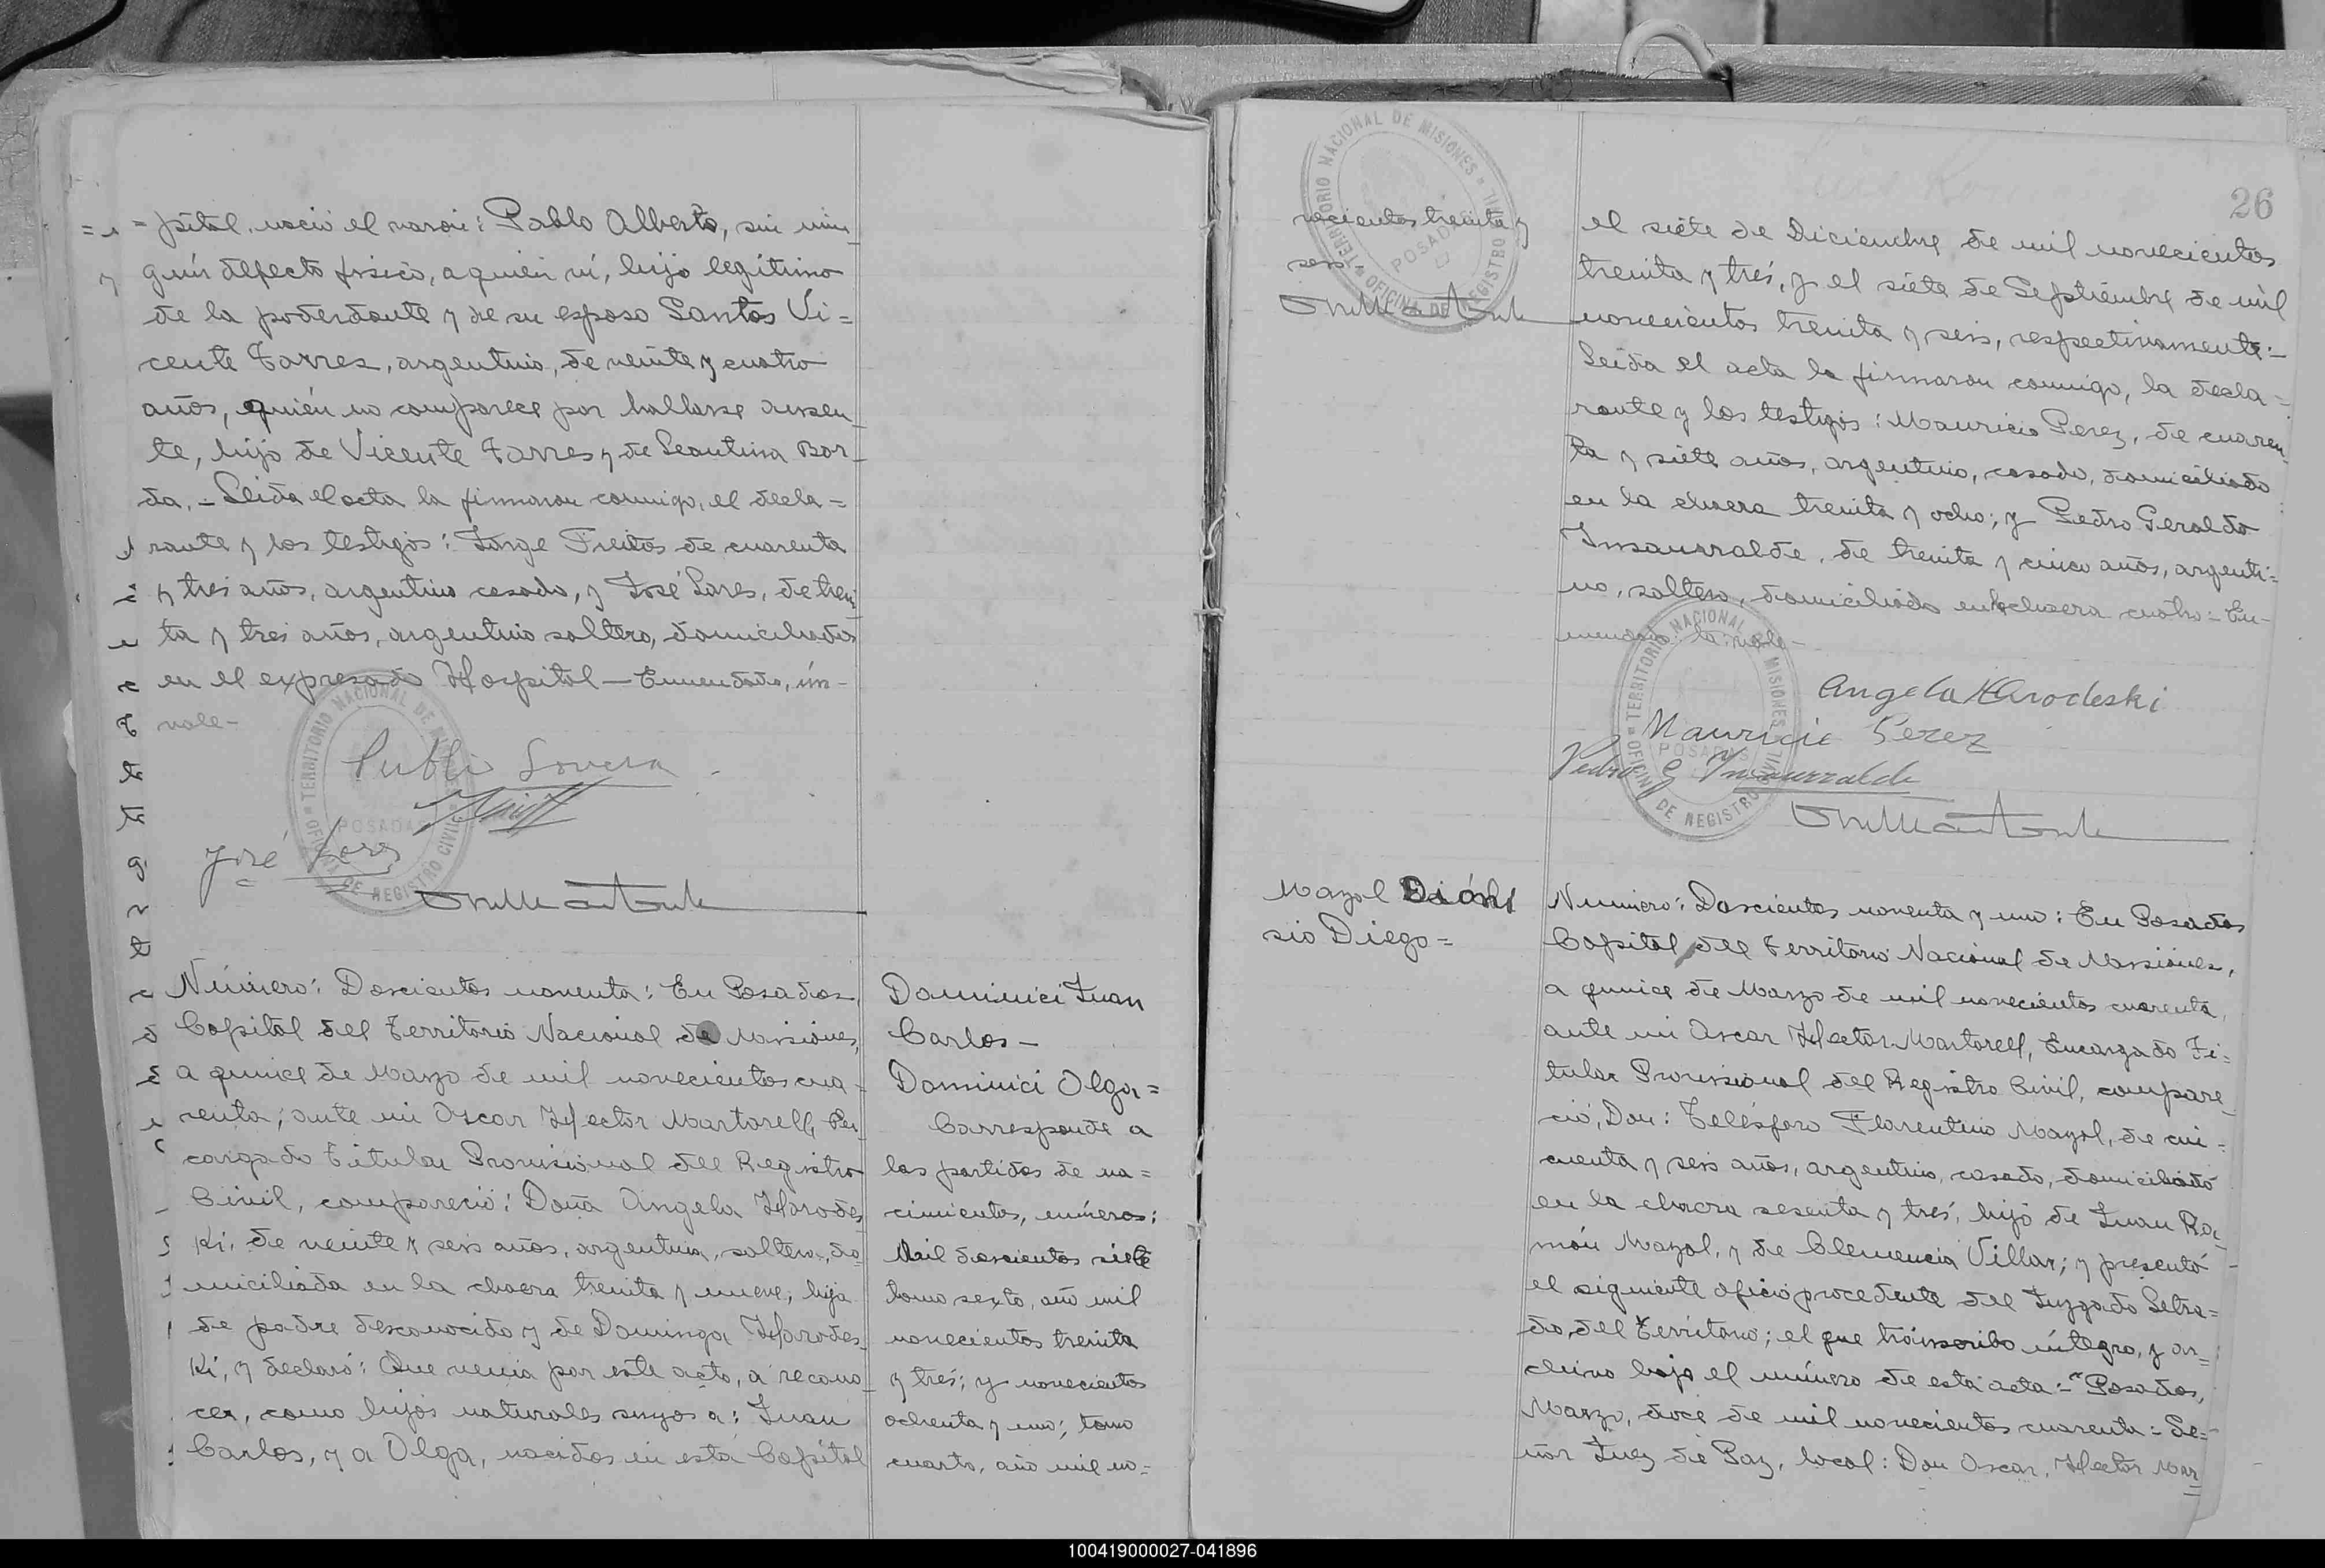 =pital, nació el varón: Pablo Alberto, sin nin_
gún defecto fisico, a quién ví, hijo legítimo
de la poderdante y de su esposo Santos Vi=
cente Torres, argentino, de veinte y cuatro
años, quién no comparece por hallarse ausen_
te, hijo de Vicente Torres y de Leontina Bor_
da.- Leida el acta la firmaron conmigo, el decla=
rante y los testigos: Jorge Freitas de cuarenta
y tres años, argentino casado, y José Lares, de trein
ta y tres años, argentino soltero, domiciliados
en el expresado Hospital - Enmendado, ún-
vale-
TERRITORIO NACIONAL DE MISIONES
OFICINA DE REGISTRO CIVIL
POSADAS
José
Número: Doscientos noventa: En Posadas,
Capital del Territorio Nacional de Misiones,
a quince de Marzo de mil novecientos cua-
renta; ante mi Oscar Hector Martorell, En_
cargado Titular Provisional del Registro
Civil, compareció: Doña Angela Harodes_
ki, de veinte y seis años, argentina, soltera, do_
miciliada en la chacra treinta y nueve, hija
de padre desconocido y de Dominga Harodes_
ki, y declaró: Que venia por este acto, a recono_
cer, como hijos naturales suyos a: Juan
Carlos, y a Olga, nacidos en esta Capital
Dominici Juan
Carlos-
Dominici Olga=
Corresponde a
las partidas de na=
cimientos, números:
Mil doscientos siete
tomo sexto, año mil
novecientos treinta
y tres; y novecientos
ochenta y uno; tomo
cuarto, año mil no=
26
vecientos treinta y
seis.
TERRITORIO NACIONAL DE MISIONES
OFICINA DE REGISTRO CIVIL
POSADAS
el siete de Diciembre de mil novecientos
treinta y tres, y el siete de Septiembre de mil
novecientos treinta y seis, respectivamente:-
Leida el acta la firmaron conmigo, la decla=
rante y los testigos: Mauricio Perez, de cuaren_
ta y siete años, argentino, casado, domiciliado
en la chacra treinta y ocho; y Pedro Geraldo
Insaurralde, de treinta y cinco años, argenti=
no, soltero, domiciliado en la chacra cuatro= En-
mendado: la: vale-
TERRITORIO NACIONAL DE MISIONES
OFICINA DE REGISTRO CIVIL
POSADAS
Angela Harodeski
Mauricio Perez
Pedro G Ynsaurralde
Mazol Dioni
sio Diego=
Numero: Doscientos noventa y uno: En Posadas
Capital del Territorio Nacional de Misiones,
a quince de Marzo de mil novecientos cuarenta,
ante mi Oscar Hector Martorell, Encargado Ti=
tular Provisional del Registro Civil, compare_
ció, Don: Telésforo Florentino Mazol, de cin=
cuenta y seis años, argentino, casado, domiciliado
en la chacra sesenta y tres, hijo de Juan Ra_
món Mazol, y de Clemencia Villar; y presentó
el siguiente oficio procedente del Juzgado Letra=
do, del Territorio; el que transcribo integro, y ar_
chivo bajo el número de esta acta:- "Posadas,
Marzo, doce de mil novecientos cuarenta= Se=
ñor Juez de Paz, local: Don Oscar, Hector Mar
100419000027-041896